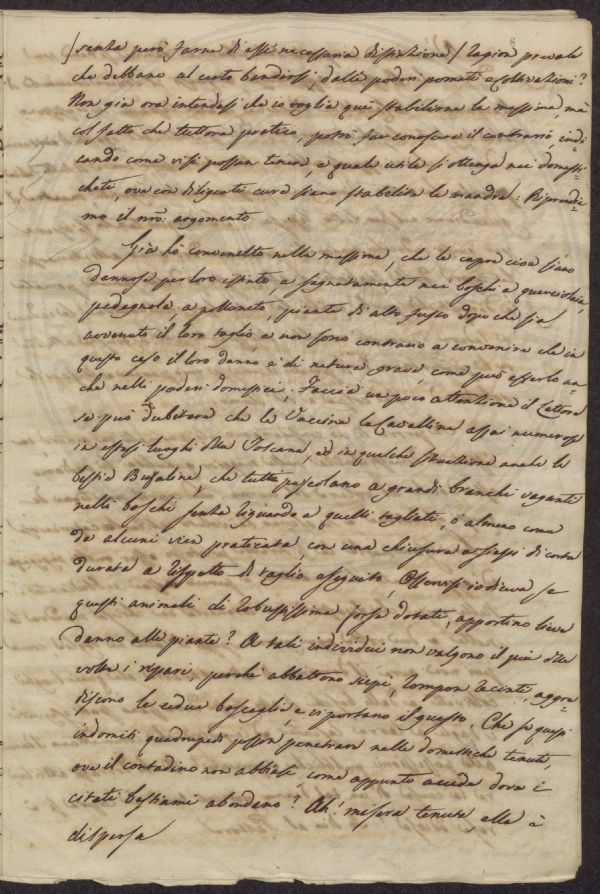 /senza però farne di esse necessaria distinzione/ ragion prevale
che debbano al certo bandirsi, dalli poderi pomati e coltivazioni?
Non già ora intendasi che io voglia quì stabilirne la massima, mà
col fatto che tuttora pratico, potrò far conoscere il contrario, indi-
cando come vi si possan tenere, e quale utile si ottenga nei domesti-
cheti, ove con diligente cura siano stabilite le mandre: Riprendia-
mo il nrò: argomento
Già hò convenuto nella massima, che le capre cioè siano
dannose per loro istinto, e segnatamente nei boschi a querciolaia,
pedagnola, a nettineto, piante di alto fusto dopo che sia
avvenuto il loro taglio e non sono contrario a convenire che in
questo caso il loro danno è di natura grave, come può esserlo an-
che nelli poderi domestici; Faccia un poco attenzione il Lettore
se può dubitare che le Vaccine le Cavalline assai numerose
in estesi luoghi della Toscana, ed in qualche situazione anche le
bestie Bufaline, che tutte pascolano a grandi branchi vaganti
nelli boschi senza riguardo a quelli tagliati, o almeno come
da alcuni vien praticata, con una chiusura a siepi di corta
durata a rispetto di taglio eseguito, Osservisi io diceva se
questi animali di robustissima forza dotati, apportino lieve
danno alle piante? A tali individui non valgono il più delle
volte i ripari, perchè abbattono siepi, rompon recinti, aggre-
discono le cedue boscaglie, e vi portano il guasto. Che se questi
indomiti quadrupedi posson penetrare nelle domestiche tenute,
ove il contadino non abbiale, come appunto accade dove i
citati bestiami abondano? Ah! misera tenuta, ella è
dispersa